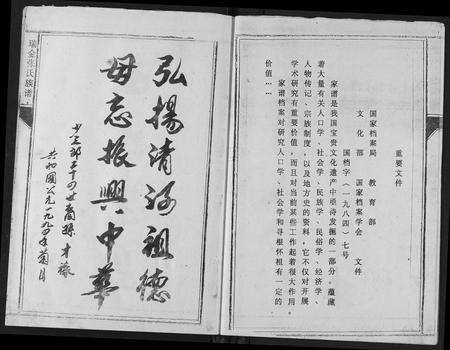 重要文件
国家档案局 教育部
文化部 国家档案学会 文件
国档字（一九八四）七号
家谱是我国宝贵文化遗产中亟待发掘的一部分。蕴藏
着大量有关人口学、社会学、民族学、民俗学、经济学、
人物传记、宗族制度，以及地方史的资料，它不仅对开展
学术研究有重要价值，而且对当前某些工作起着很大作用
家谱档案对研究人口学、社会学和寻根怀根有一定的
价值……
弘揚清河祖德
毋忘振興中華
三十四世裔孫
共和國公元一九九四年菊月
瑞金张氏族谱